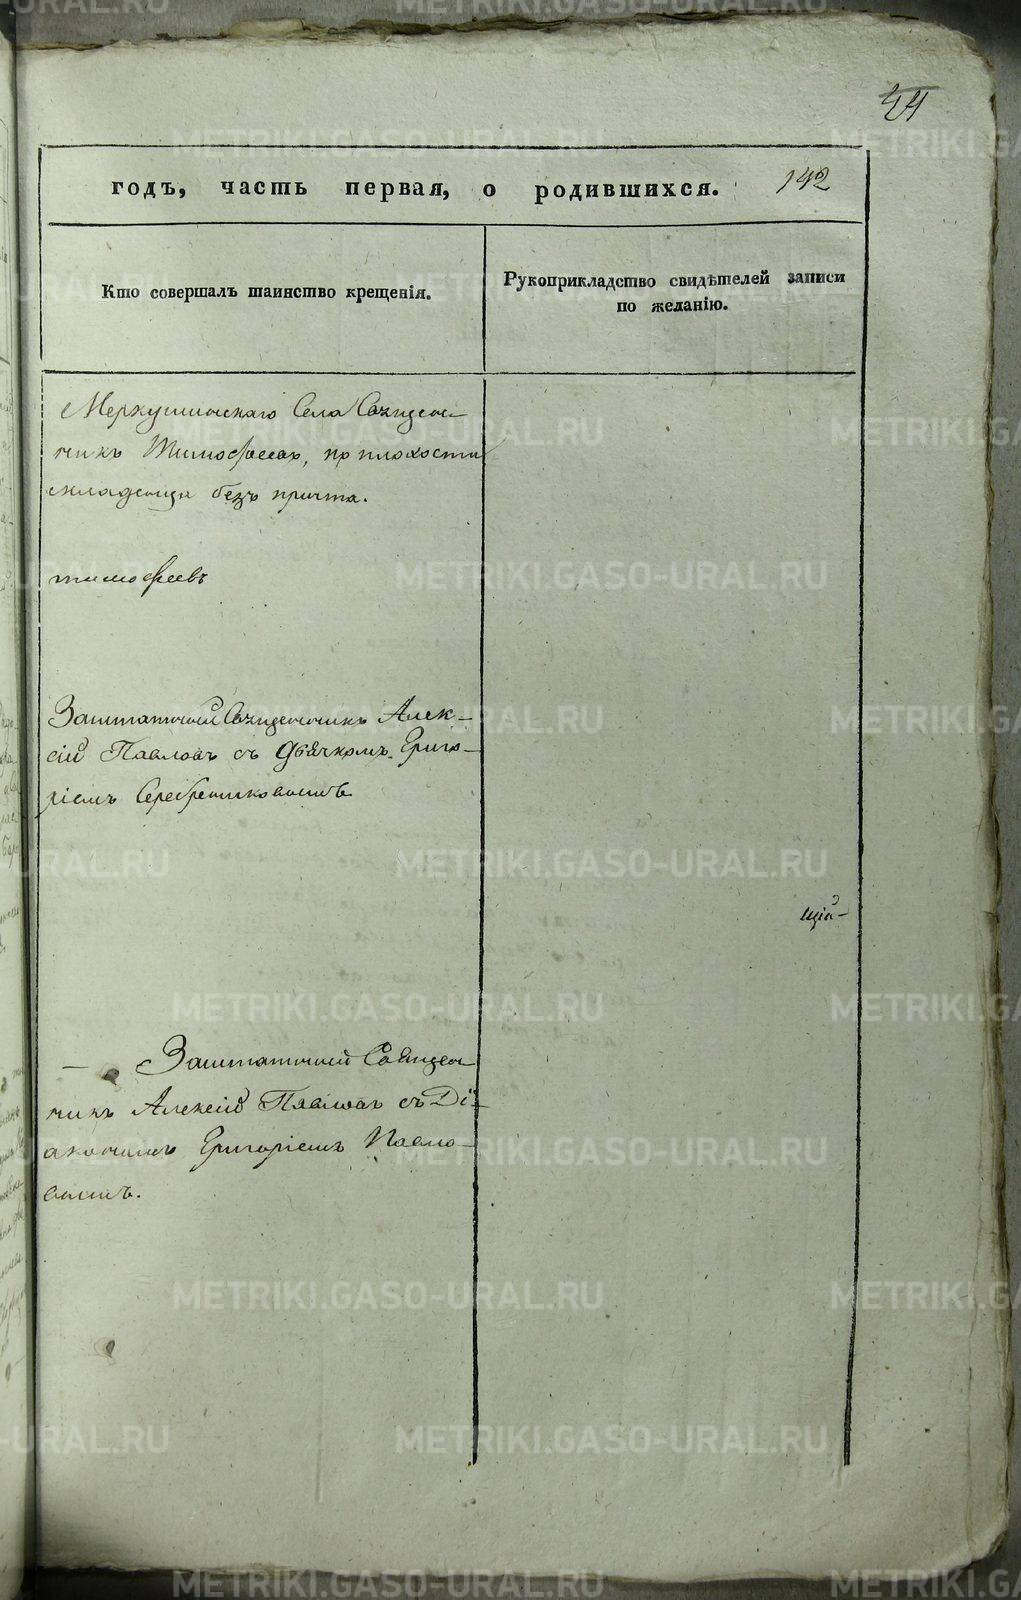 44
годъ, часть первая, о родившихся. 142
Кто совершалъ таинство крещенія.
Рукоприкладство свидѣтелей записи
по желанію.
Меркушинскаго Села Священ-
никъ Тимофеевъ, по
безъ причта.
тимофеевъ
Заштатный Священникъ Алек-
сій Павловъ съ Дьячкомъ Григо-
ріемъ Серебренниковымъ
щій-
Заштатный Священ
никъ Алексій Павловъ съ Ді-
акономъ Григоріемъ Павло-
вымъ.
METRIKI.GASO-URAL.RU